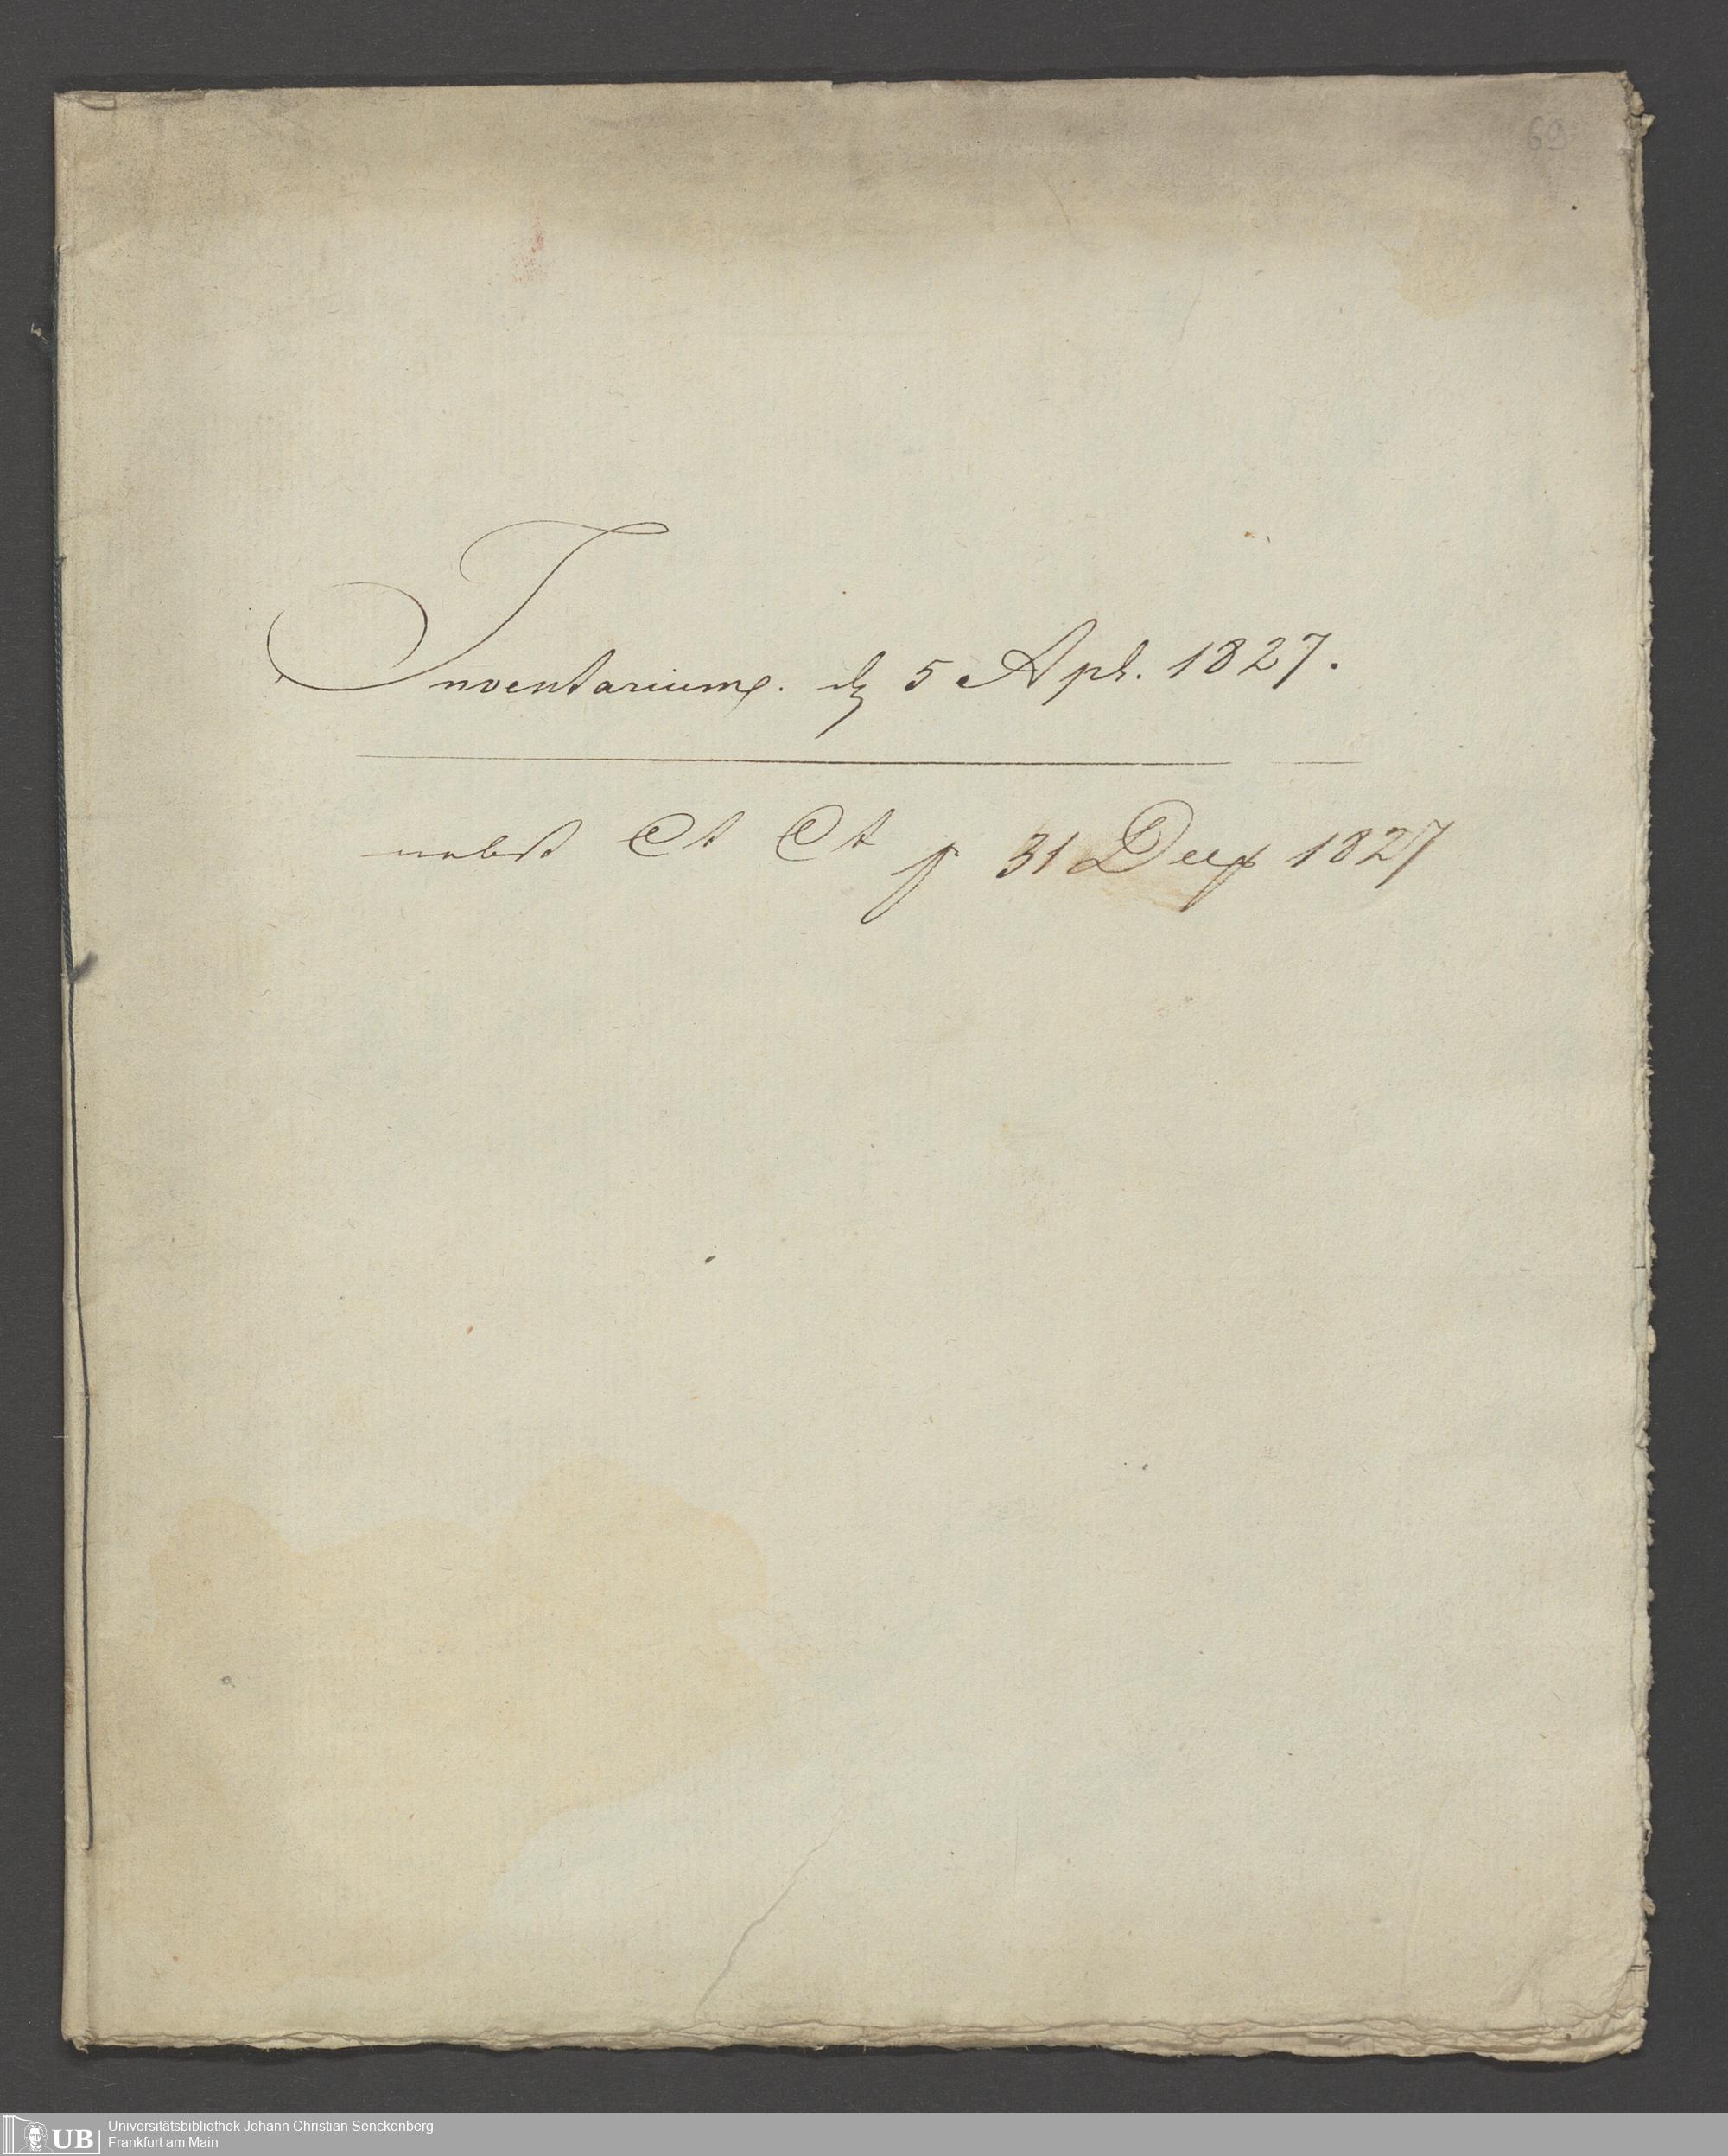 69
Inventarium. d 5 Apl. 1827.
nebst Ct Ct p 31 Dec 1827
UB
Universitätsbibliothek Johann Christian Senckenberg
Frankfurt am Main